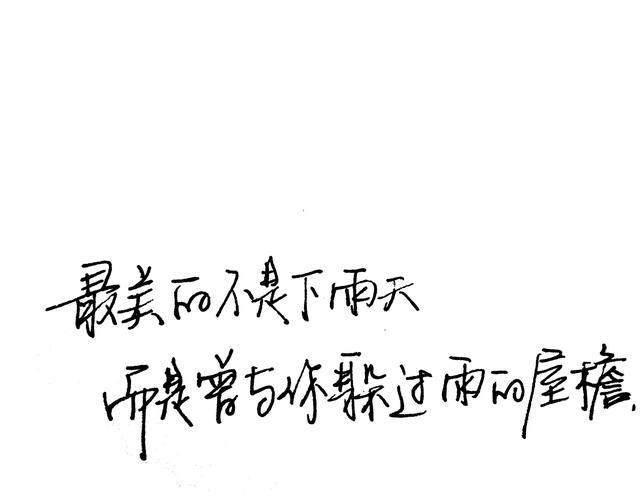 最美的不是下雨天
而是曾与你躲过雨的屋檐.